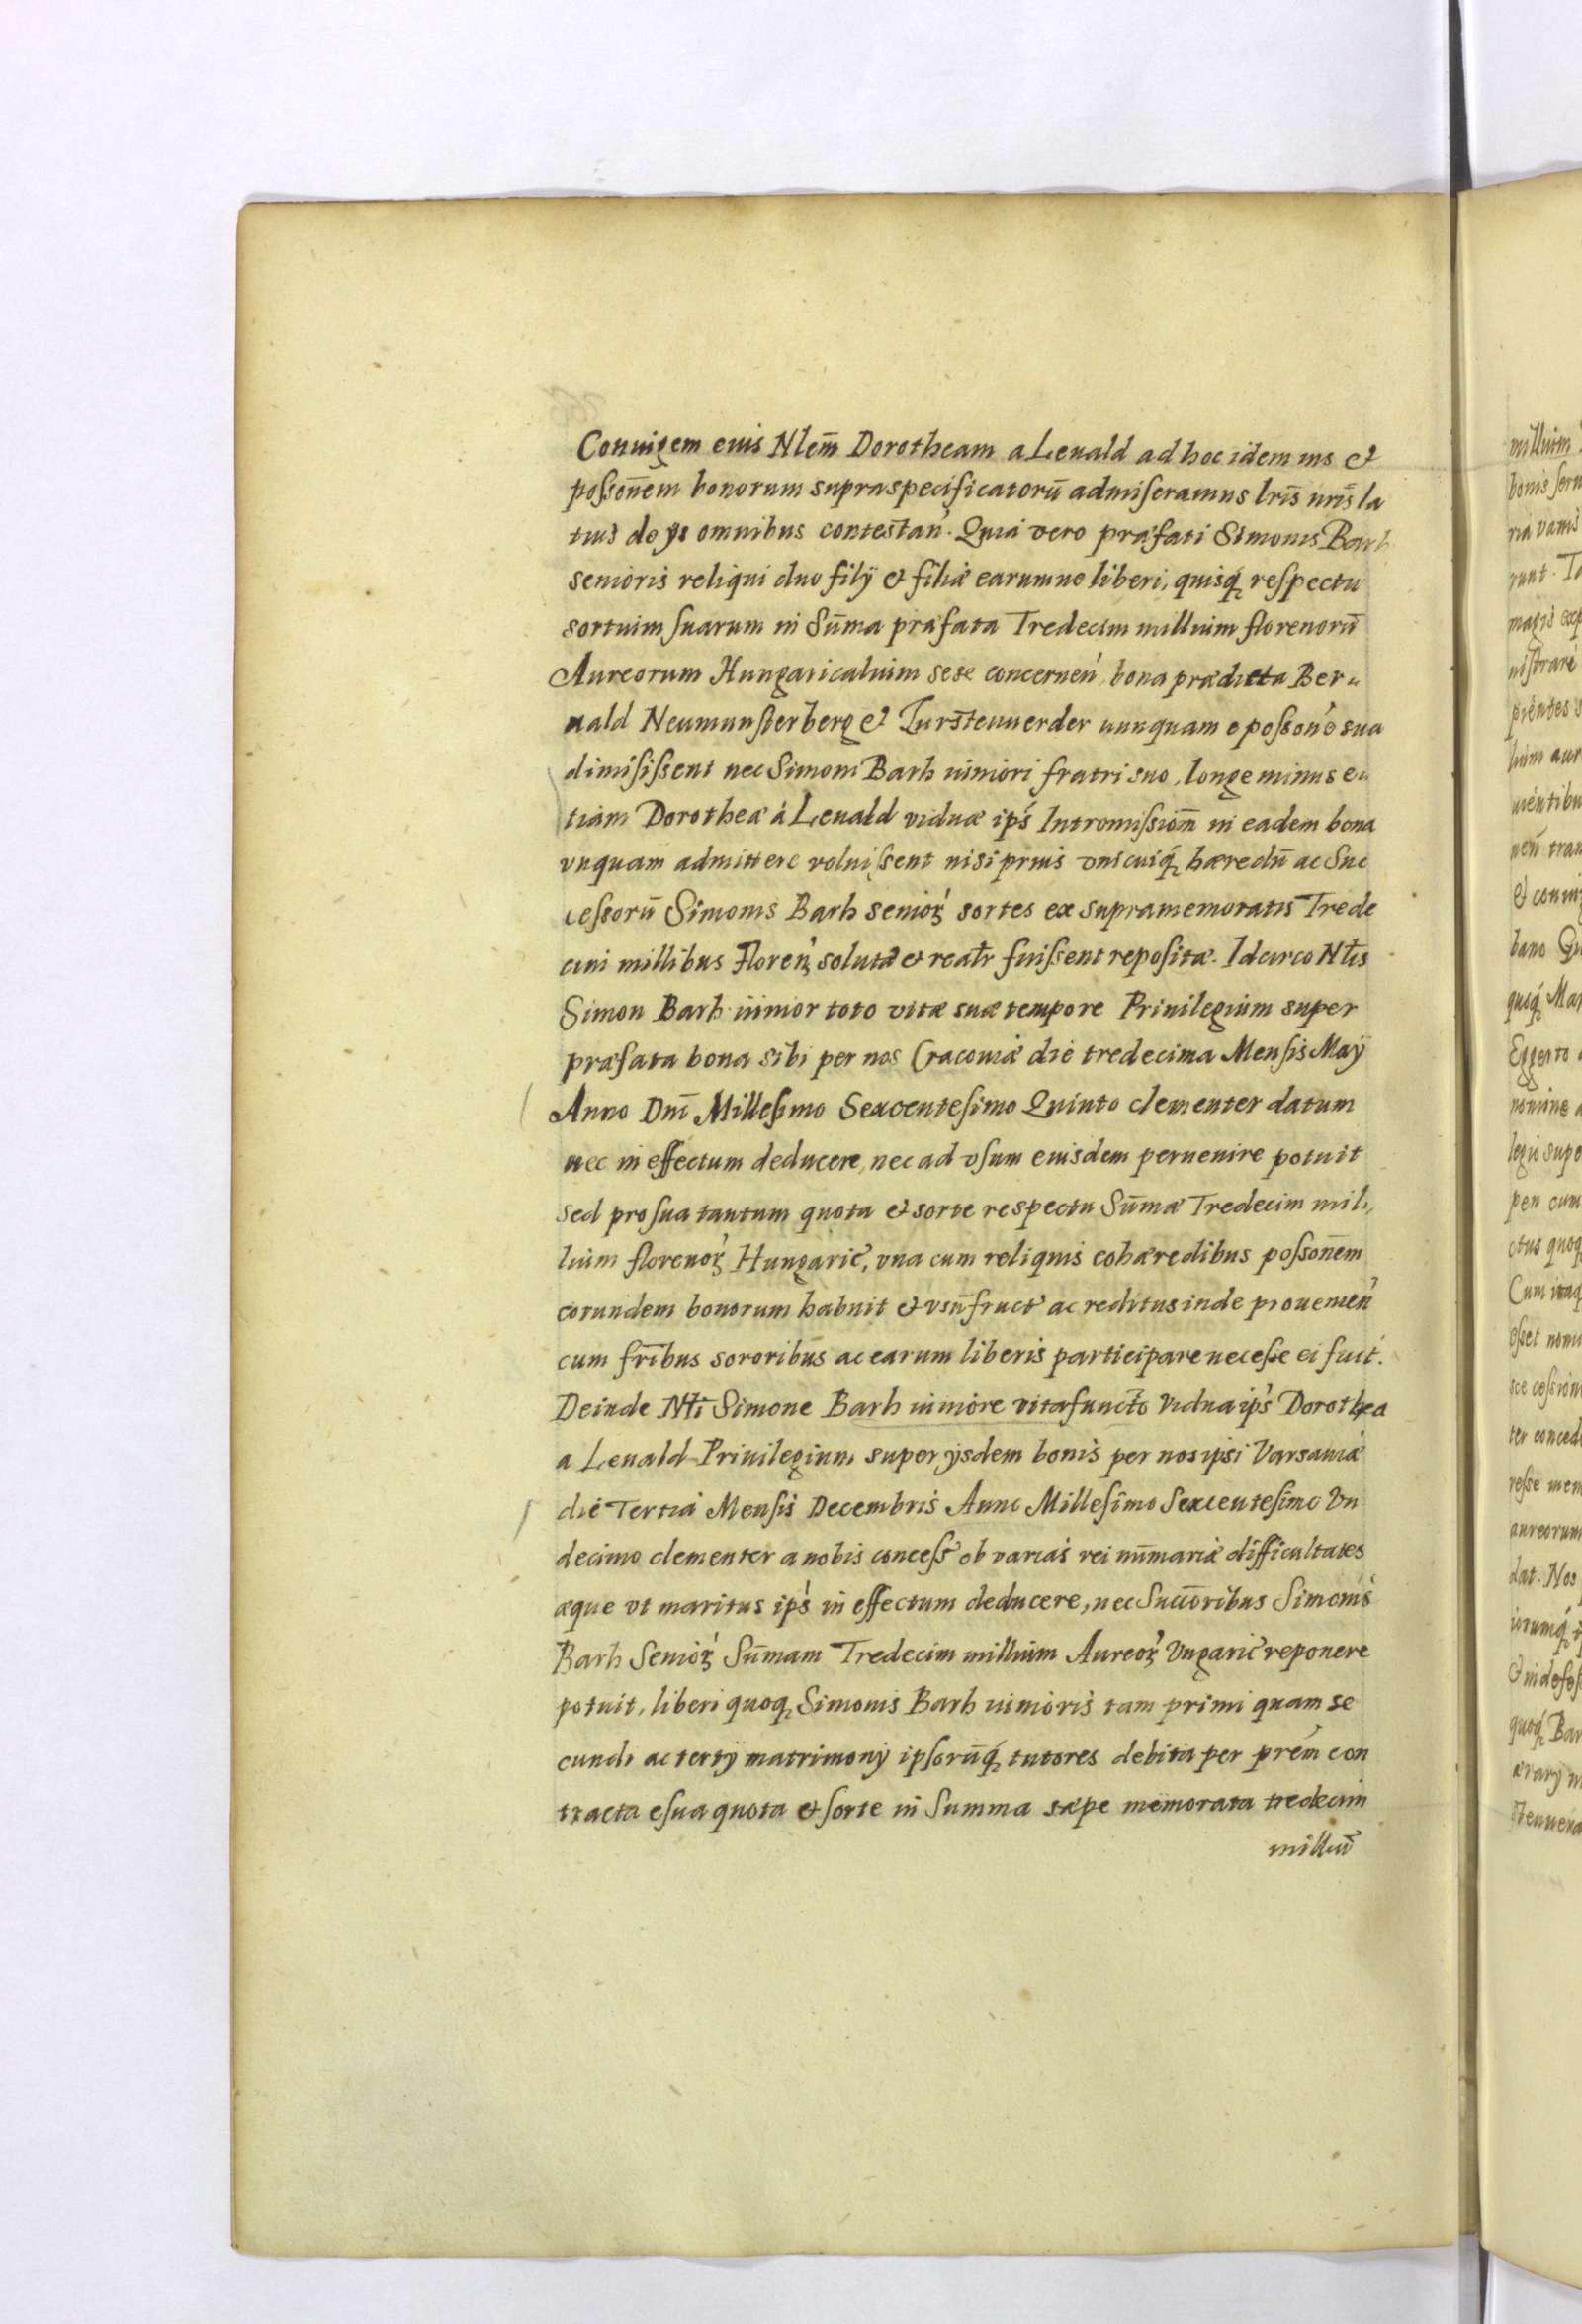 Coniugem eius Nlem̄ Dorotheam a Leuald ad hoc idem ius et
poſsoñem bonorum supraspecificatorū admiſeramus lr̄is nr̄is la
tius de ijs omnibus contestan̄. Quia vero præfati Simonis Barh
senioris reliqui duo filÿ et filiæ earumue liberi, quisq́ȝ reſpectu
sortium ſuarum in Sūma præfata Tredecim millium florenorū
Aureorum Hungaricalium sese concernen̄, bona prædicta Ber„
uald Neumunſterberg et Furstenuerder nunquam e poſsone sua
dimiſiſsent nec Simoni Barh iuniori fratri suo, longe minus e„
tiam Dorotheæ á Leuald viduæ ips̓ Intromiſsiom̄ in eadem bona
vnquam admittere voluiſsent nisi prius vnicuiq́ȝ hæredū ac Suc
ceſsorū Simonis Barh senioꝝ sortes ex supramemoratis Trede
cim millibus Florenꝝ solutæ et realr̄ fuiſsent repoſitæ. Idcirco Nłis
Simon Barh iunior toto vitæ suæ tempore Priuilegium super
præfata bona sibi per nos Cracouiæ die tredecima Menſis Maÿ
Anno Dnī Milleſimo Sexcenteſimo Quinto clementer datum
nec in effectum deducere, nec ad vſum eiusdem peruenire potuit
sed pro ſua tantum quota et sorte respectu Sūmæ Tredecim mil„
lium florenoꝝ Hungaric̄, vna cum reliquis cohæredibus poſsonēm
eorundem bonorum habuit et vsūfruct̄ ac reditus inde prouenien̄
cum fr̄ibus sororibus ac earum liberis participare neceſse ei fuit.
Deinde Nłi Simone Barh iuniore vita functo Vidua ips̓ Dorothea
a Leuald Priuilegium super ijsdem bonis per nos ipsi Varsauiæ
die Tertia Menſis Decembris Anno Milleſimo Sexcenteſimo Vn
decimo clementer a nobis conceſs̄ ob varias rei nūmariæ difficultates
æque vt maritus ips̓ in effectum deducere, nec Succ̄oribus Simonis
Barh Senioꝝ Sūmam Tredecim millium Aureoꝝ Vngaric̄ reponere
potuit, liberi quoqȝ Simonis Barh iunioris tam primi quam se
cundi ac tertÿ matrimonÿ ipſorūq́ȝ tutores debita per prem̄ con
tracta e ſua quota et ſorte in Summa sæpe memorata tredecim
milliū